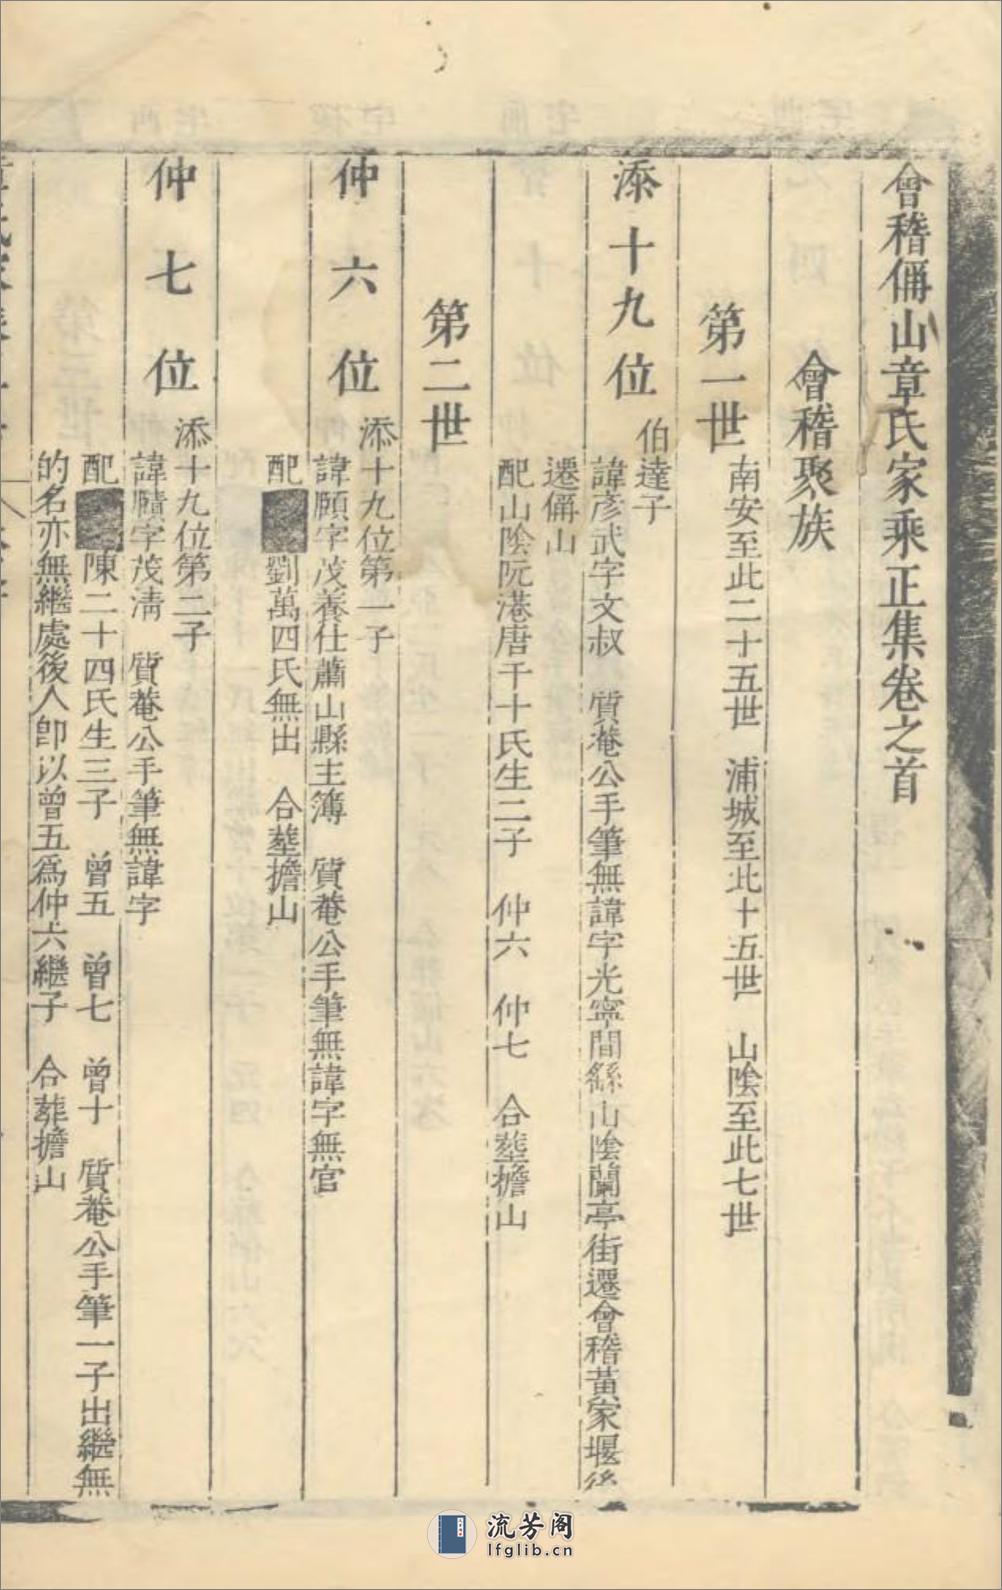 會稽偁山章氏家乘正集卷之首
會稽聚族
第一世
南安至此二十五世　浦城至此十五世　山陰至此七世
添十九位
伯達子
諱彥武字文叔　質菴公手筆無諱字光寧間繇山陰蘭亭街遷會稽黃家堰後
遷偁山
配山陰阮港唐千十氏生二子　仲六　仲七　合塟擔山
第二世
仲六位
添十九位第一子
諱願字茂養仕蕭山縣主簿　質菴公手筆無諱字無官
配　劉萬四氏無出　合塟擔山
仲七位
添十九位第二子
諱賾字茂淸　質菴公手筆無諱字
配　陳二十四氏生三子　曾五　曾七　曾十　質菴公手筆一子出繼無
的名亦無繼處後人卽以曾五爲仲六繼子　合葬擔山
流芳阁
lfglib.cn